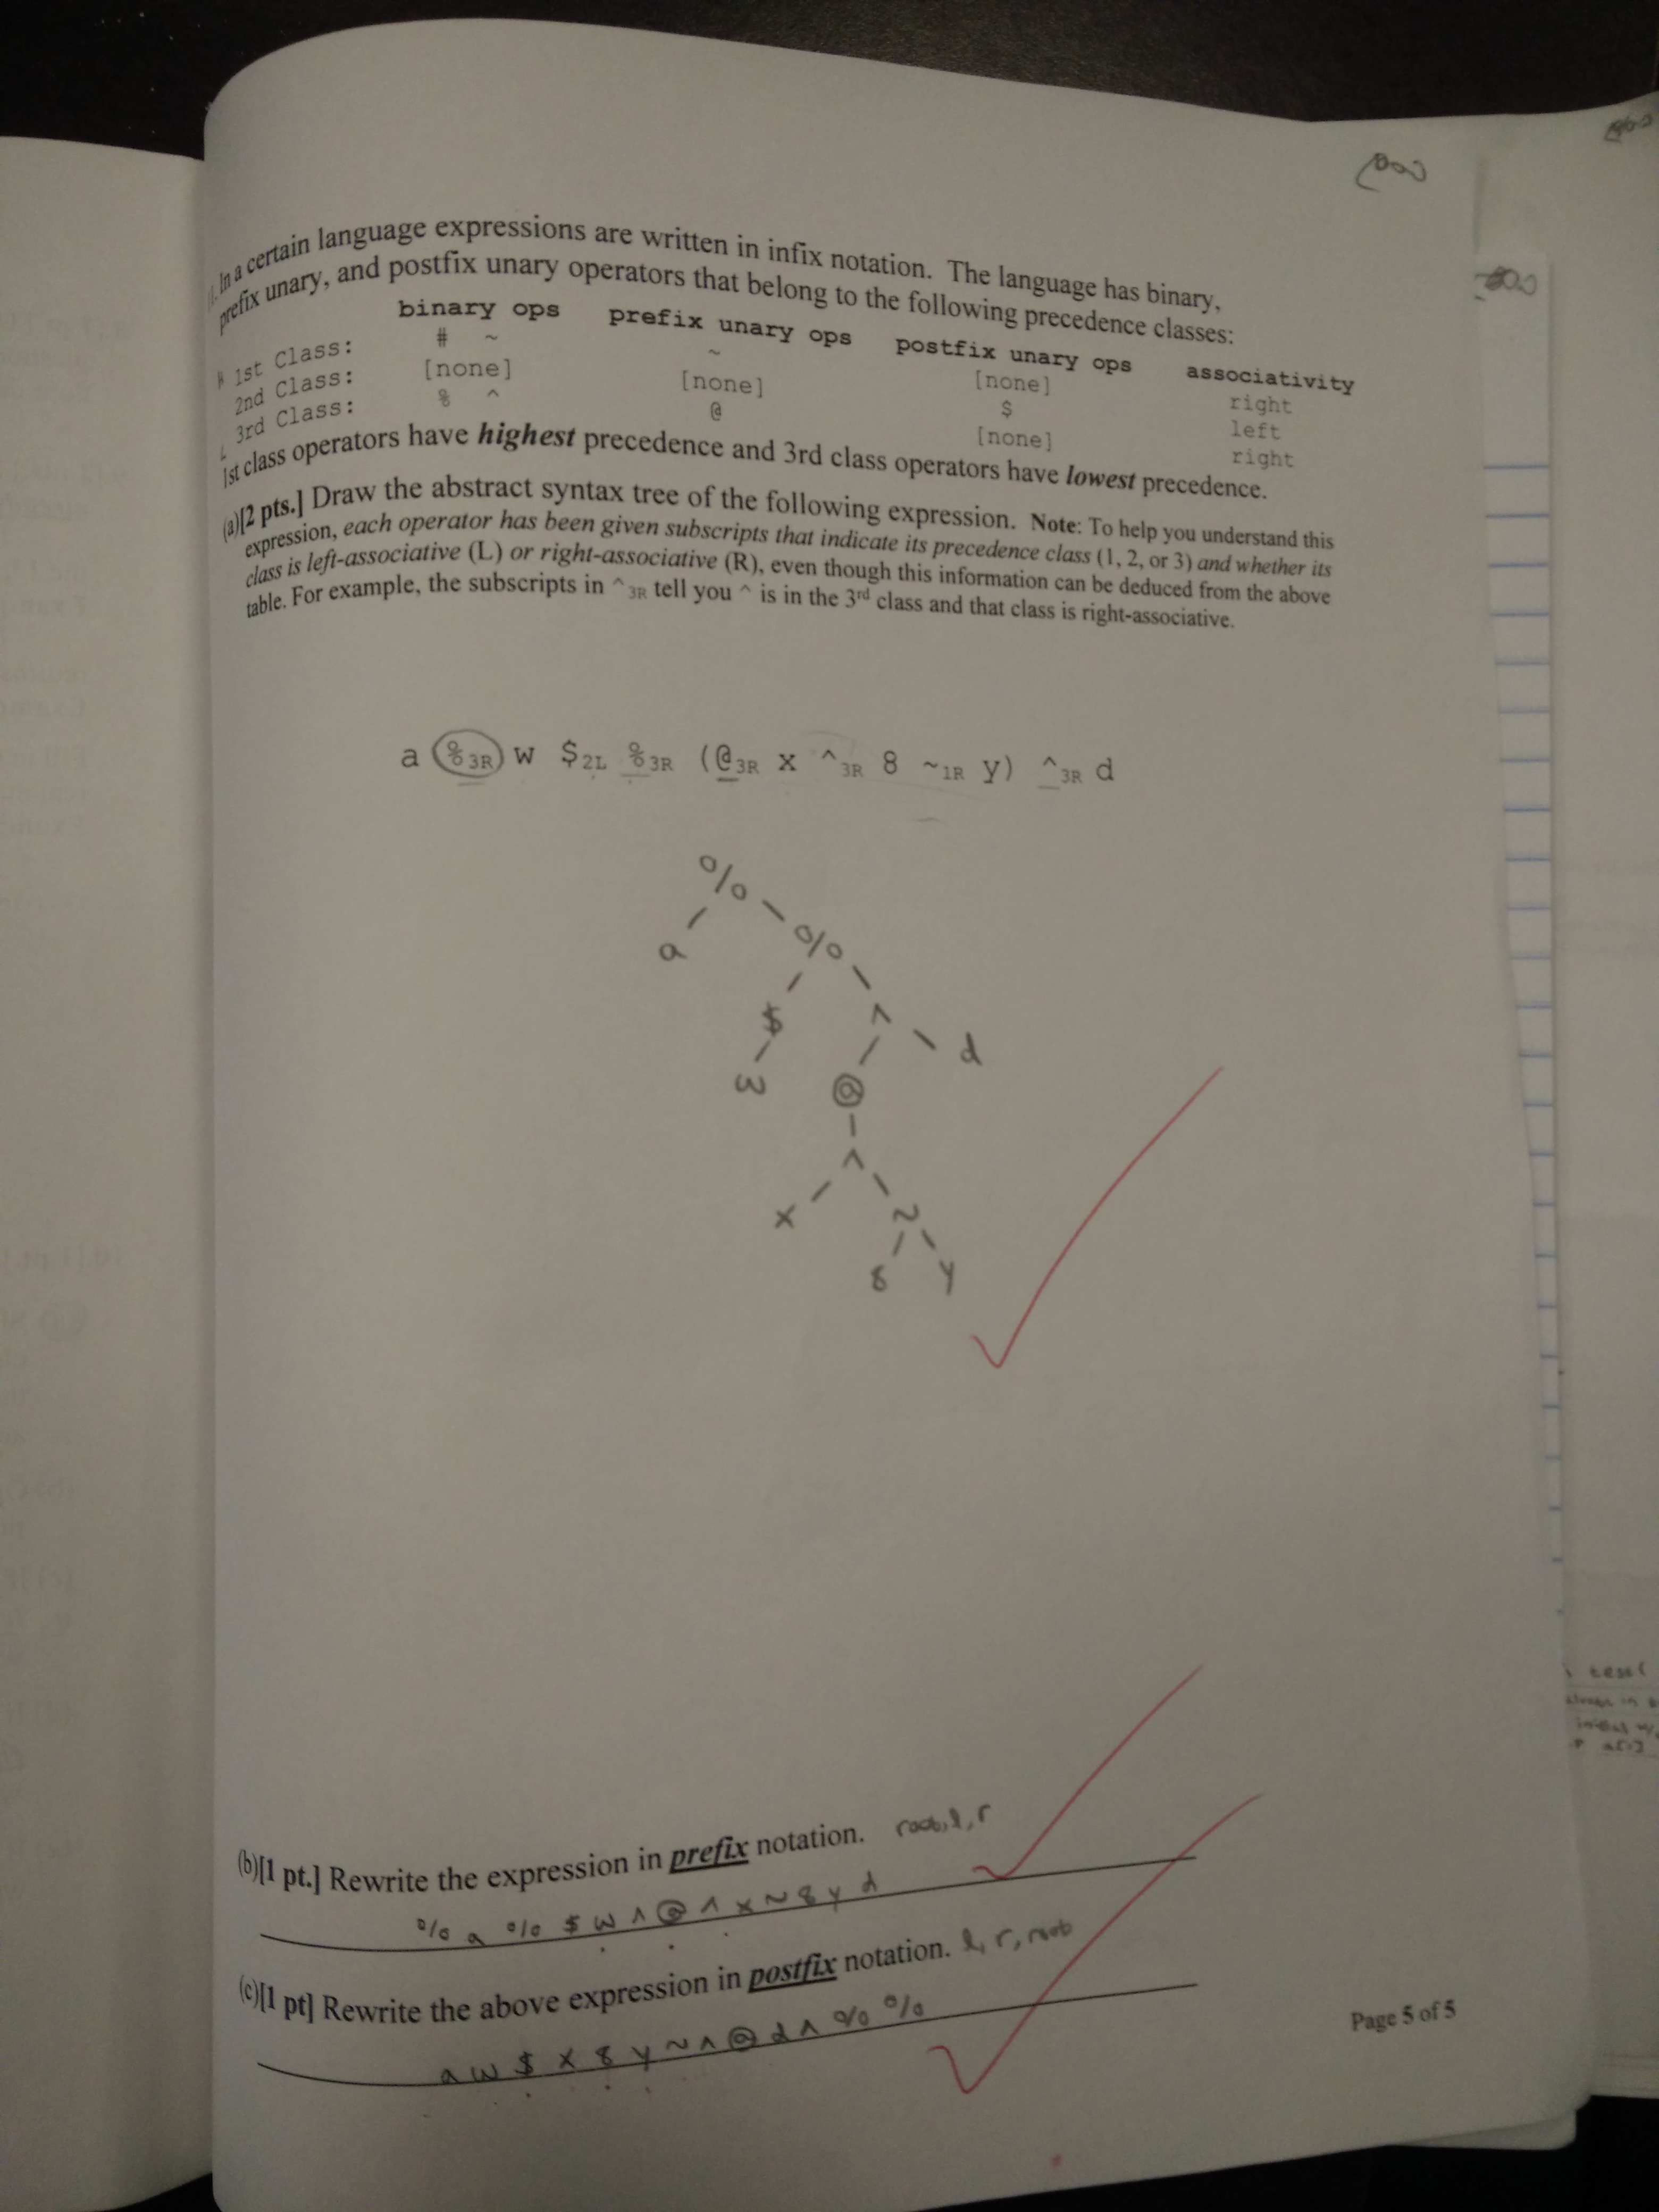 In a certain language expressions are written in infix notation. The language has binary,
prefix unary, and postfix unary operators that belong to the following precedence classes:
binary ops prefix unary ops postfix unary ops associativity
1st Class: # ~ ~ [none] right
2nd Class: [none] [none] $ left
3rd Class: % ^ @ [none] right
1st class operators have highest precedence and 3rd class operators have lowest precedence.
(a)[2 pts.] Draw the abstract syntax tree of the following expression. Note: To help you understand this
expression, each operator has been given subscripts that indicate its precedence class (1, 2, or 3) and whether its
class is left-associative (L) or right-associative (R), even though this information can be deduced from the above
table. For example, the subscripts in ^3R tell you ^ is in the 3rd class and that class is right-associative.
a %3R w $2L %3R (@3R x ^3R 8 ~1R y) ^3R d
%
a %
$ ^
w @ d
^
x ~
8 y
(b)[1 pt.] Rewrite the expression in prefix notation. root, l, r
% a % $ w ^ @ ^ x ~ 8 y d
(c)[1 pt] Rewrite the above expression in postfix notation. l, r, root
a w $ x 8 y ~ ^ @ d ^ % %
Page 5 of 5